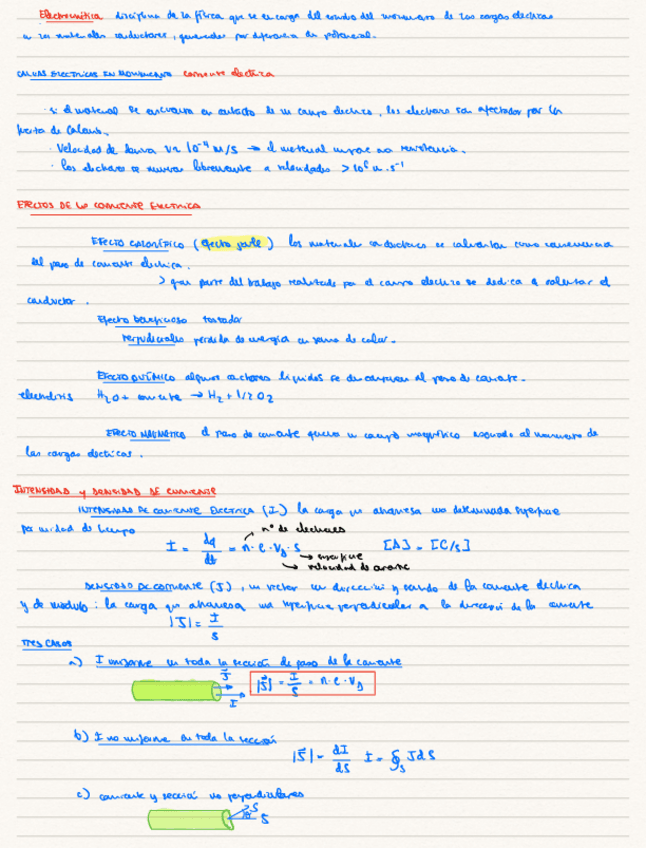 Electrocinética disciplina de la física que se encarga del estudio del movimiento de las cargas eléctricas
a los materiales conductores, generados por diferencia de potencial.
CARGAS ELECTRICAS EN MOVIMIENTO corriente eléctrica
· si el material se encuentra en contacto de un campo eléctrico, los electrones son afectados por la
fuerza de Coulomb.
· Velocidad de deriva v≈ 10⁻⁴ m/s → el material impone una resistencia.
· los electrones se mueven libremente a velocidades > 10⁶ m.s⁻¹
EFECTOS DE LA CORRIENTE ELECTRICA
EFECTO CALORÍFICO (efecto joule) los materiales conductores se calientan como consecuencia
del paso de corriente electrica.
> gran parte del trabajo realizado por el campo electrico se dedica a calentar el
conductor.
Efecto beneficioso tostador
Perjudiciales perdida de energia en forma de calor.
EFECTO QUÍMICO algunos conductores líquidos se descomponen al paso de corriente.
electrolisis H₂O + corriente → H₂ + 1/2 O₂
EFECTO MAGNÉTICO el paso de corriente genera un campo magnético asociado al movimiento de
las cargas eléctricas.
INTENSIDAD Y DENSIDAD DE CORRIENTE
INTENSIDAD DE CORRIENTE ELECTRICA (I) la carga que atraviesa una determinada superficie
por unidad de tiempo
nº de electrones
I = dq/dt = n · e · v_d · s [A] = [C/s]
→ superficie
→ velocidad de arrastre
DENSIDAD DE CORRIENTE (J), un vector con dirección y sentido de la corriente electrica
y de modulo: la carga que atraviesa una superficie perpendicular a la direccion de la corriente
|J| = I/S
TRES CASOS
a) I uniforme en toda la sección de paso de la corriente
J⃗ |J⃗| = I/S = n · e · v_d
I
b) I no uniforme en toda la sección
|J⃗| = dI/dS I = ∮_S J dS
c) corriente y sección no perpendiculares
S